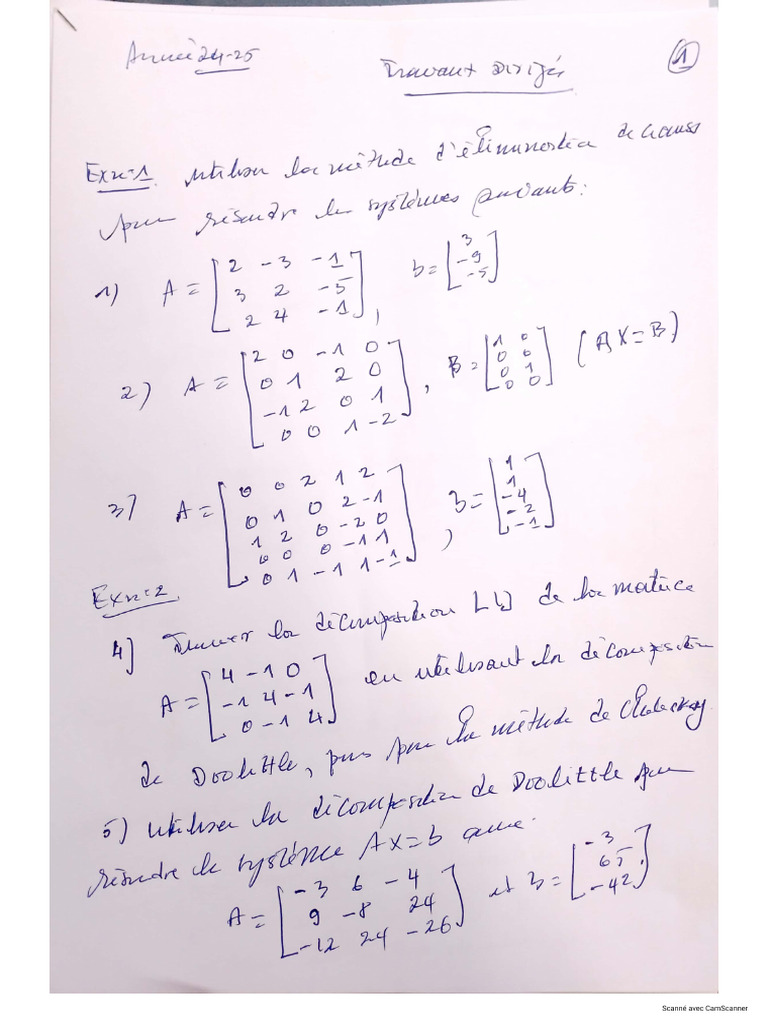 Année 24-25
Travaux Dirigés
1
Ex n=1. Utiliser la méthode d'élimination de Gauss
pour résoudre les systèmes suivants:
1) A = [2 -3 -1 b = [3
3 2 -5 -9
2 4 -1], -5]
2) A = [2 0 -1 0 , B = [1 0 (AX=B)
0 1 2 0 0 0
-1 2 0 1 0 1
0 0 1 -2] 0 0]
3) A = [0 0 2 1 2 , b = [1
0 1 0 2 -1 1
1 2 0 -2 0 -4
0 0 0 -1 1 -2
0 1 -1 1 -1] -1]
Ex n=2.
4] Trouver la décomposition LU de la matrice
A = [4 -1 0 en utilisant la décomposition
-1 4 -1
0 -1 4]
de Doolittle, puis par la méthode de
5) Utiliser la décomposition de Doolittle pour
résoudre le système AX=b avec.
A = [-3 6 -4 et b = [-3
9 -8 24 65
-12 24 -26] -42]
Scanné avec CamScanner